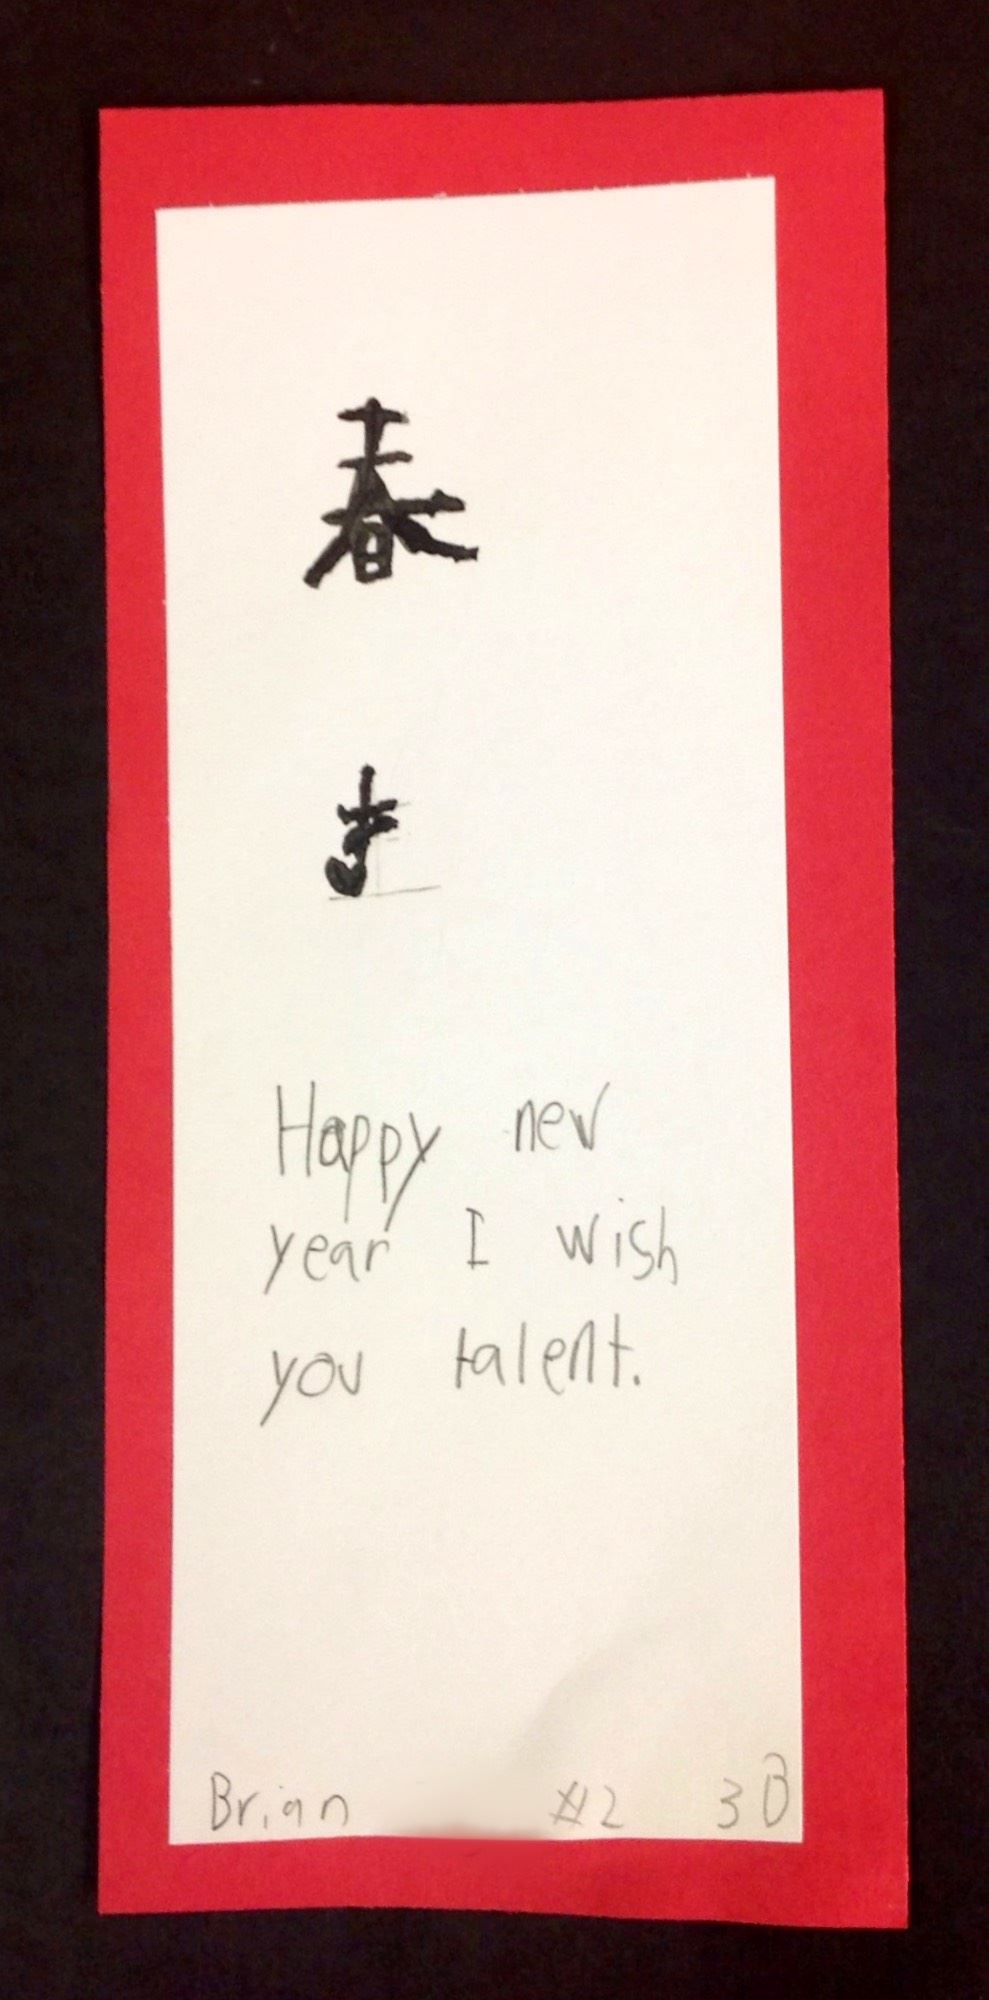 春
Happy new
year I wish
you talent.
Brian #2 3B